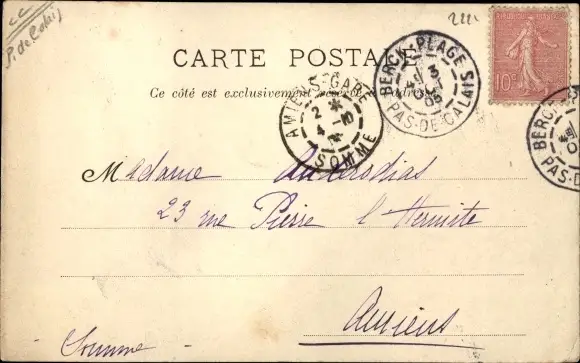 P. de Calais
222
CARTE POSTALE
Ce côté est exclusivement réservé à l'adresse
RÉPUBLIQUE FRANÇAISE
10c
BERCK-PLAGE
3
05
PAS-DE-CALAIS
AMIENS-GARE
2 *
4 -10
SOMME
BERCK
PAS-D
Madame
23 rue Pierre l'Hermite
Amiens
Somme